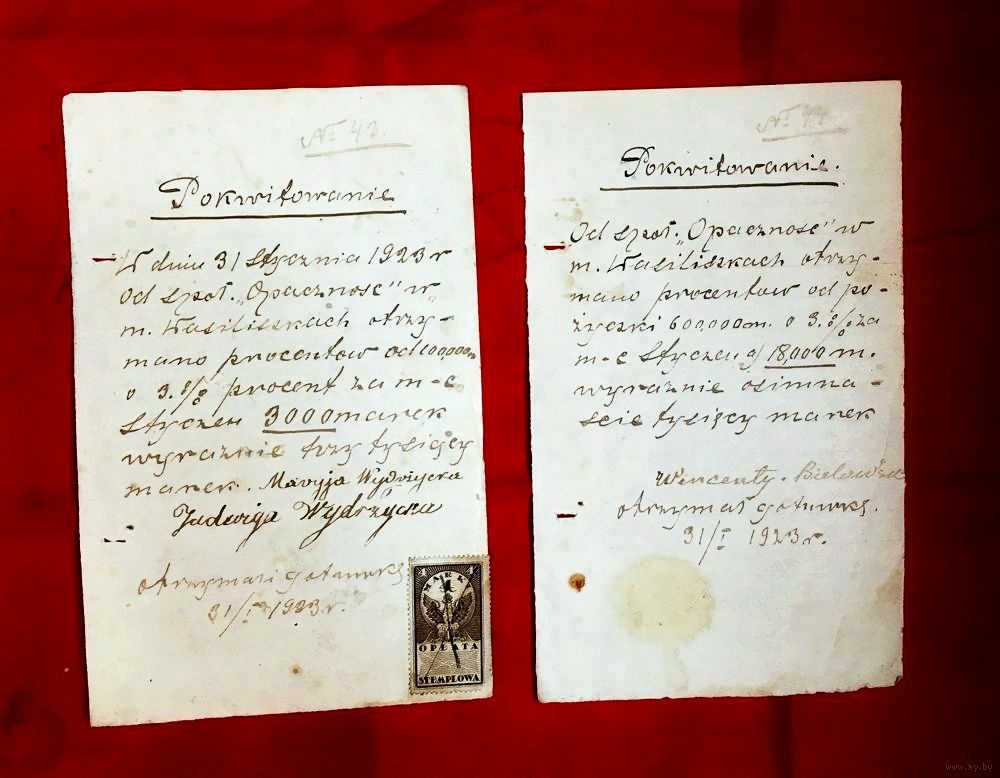 № 43.
Pokwitowanie
W dniu 31 Stycznia 1923 r
Od Społ. „Opaczność" w
m. Wasiliszkach otrzy-
mano procentow od 100,000m
o 3.% procent za m-c
Styczeń 3000 marek
wyraźnie trzy tysięcy
marek. Maryja Wydrżycka
Jadwiga Wydrżycka
otrzymali gotuwką
31/I 1923 r.
4 4
MAREK
OPŁATA
STEMPLOWA
№
Pokwitowanie.
Od Społ. „Opaczność" w
m. Wasiliszkach otrzy-
mano procentow od po-
życzki 600,000 m. o 3.% za
m-c Styczeń 18,000 m.
wyraźnie osimna-
scie tysięcy marek
Wincenty
otrzymał gotuwką.
31/I 1923 r.
www.ay.by